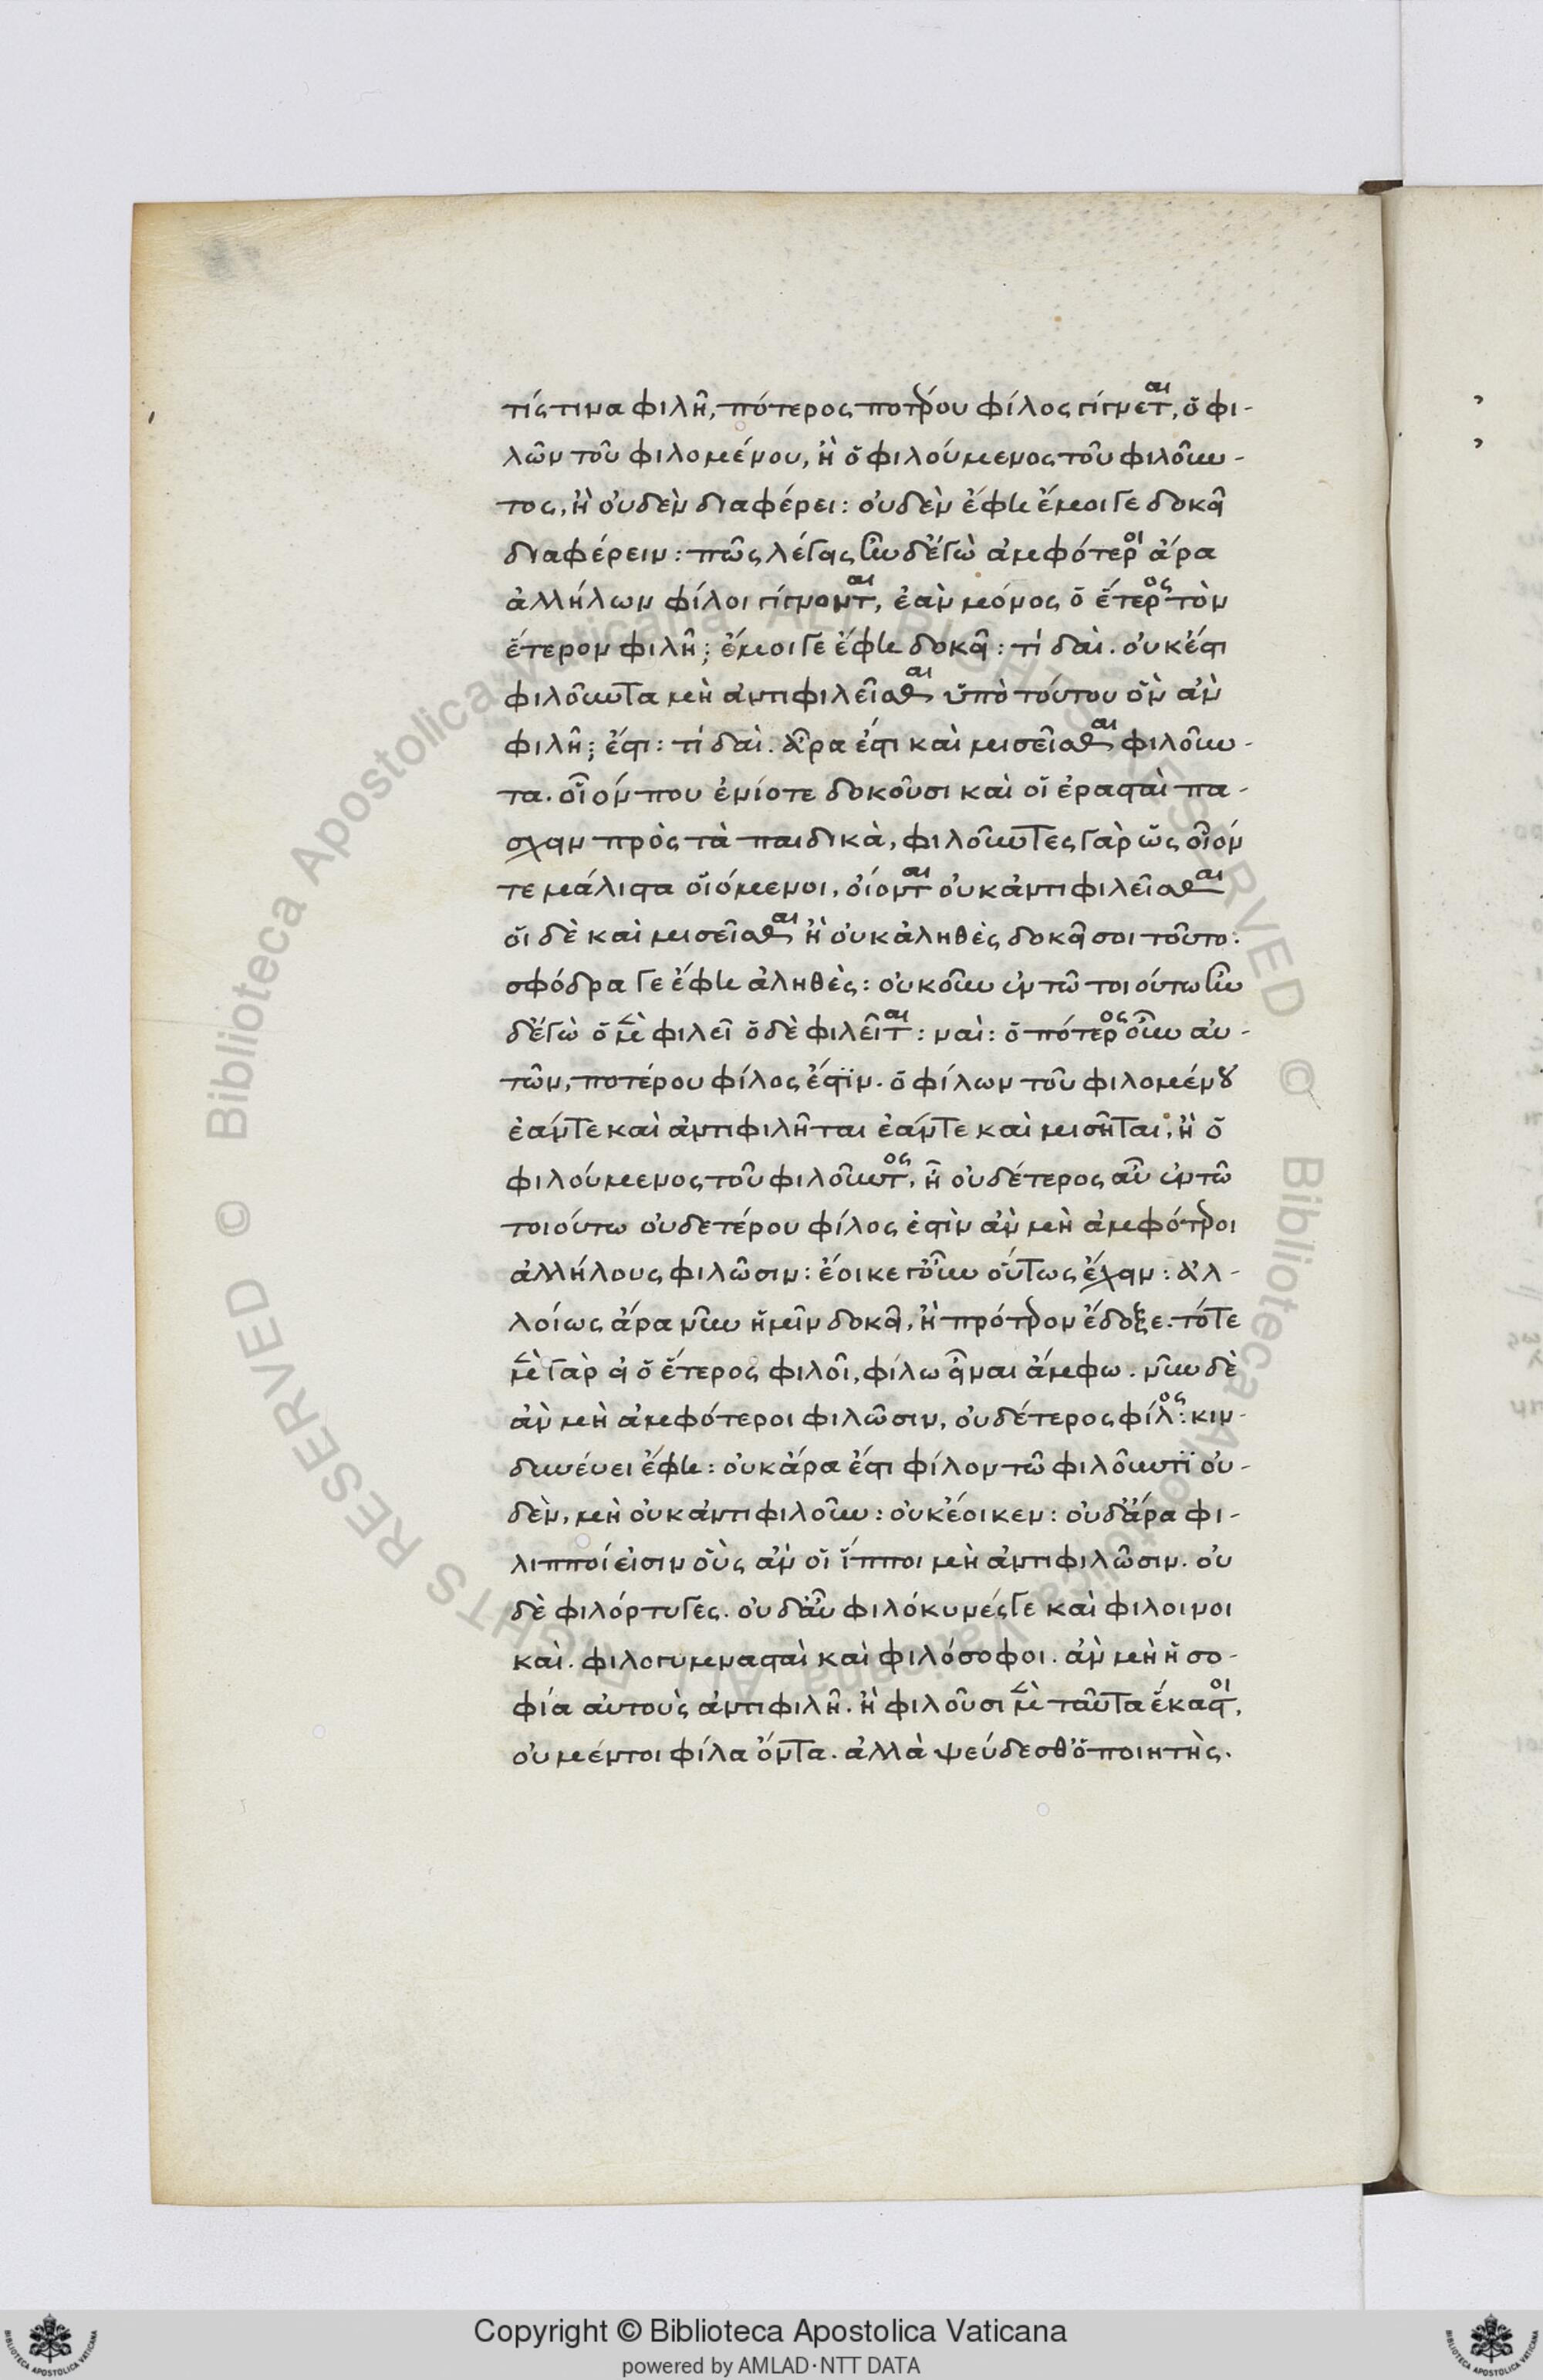 τίς τινα φιλῆ, πότερος ποτέρου φίλος γίγνεται, ὁ φι-
λῶν τοῦ φιλομένου, ἢ ὁ φιλούμενος τοῦ φιλοῦν-
τος, ἢ οὐδὲν διαφέρει: οὐδὲν ἔφη ἔμοιγε δοκεῖ
διαφέρειν: πῶς λέγεις ἦν δ' ἐγὼ ἀμφότεροι ἄρα
ἀλλήλων φίλοι γίγνονται, ἐὰν μόνος ὁ ἕτερος τὸν
ἕτερον φιλῆ; ἔμοιγε ἔφη δοκεῖ: τί δαὶ. οὐκ ἔστι
φιλοῦντα μὴ ἀντιφιλεῖσθαι ὑπὸ τούτου ὃν ἂν
φιλῆ; ἔστι: τί δαὶ. ἆρα ἔστι καὶ μισεῖσθαι φιλοῦν-
τα. οἷον που ἐνίοτε δοκοῦσι καὶ οἱ ἐρασταὶ πά-
σχειν πρὸς τὰ παιδικὰ, φιλοῦντες γὰρ ὡς οἷόν
τε μάλιστα οἰόμενοι, οἴονται οὐκ ἀντιφιλεῖσθαι
οἱ δὲ καὶ μισεῖσθαι ἢ οὐκ ἀληθὲς δοκεῖ σοι τοῦτο:
σφόδρα γε ἔφη ἀληθὲς: οὐκοῦν ἐν τῶ τοιούτω ἦν
δ' ἐγὼ ὁ μὲν φιλεῖ ὁ δὲ φιλεῖται: ναὶ: ὁπότερος οὖν αὐ-
τῶν, ποτέρου φίλος ἐστϊν. ὁ φίλων τοῦ φιλομένου
ἐάντε καὶ ἀντιφιλῆται ἐάντε καὶ μισῆται, ἢ ὁ
φιλούμενος τοῦ φιλοῦντος, ἢ οὐδέτερος αὖ ἐν τῶ
τοιούτω οὐδετέρου φίλος ἐστὶν ἂν μὴ ἀμφότεροι
ἀλλήλους φιλῶσιν: ἔοικε γοῦν οὕτως ἔχειν: ἀλ-
λοίως ἄρα νῦν ἡμῖν δοκεῖ, ἢ πρότερον ἔδοξε. τότε
μὲν γὰρ εἰ ὁ ἕτερος φιλοῖ, φίλω εἶναι ἄμφω. νῦν δὲ
ἂν μὴ ἀμφότεροι φιλῶσιν, οὐδέτερος φίλος: κιν-
δυνεύει ἔφη: οὐκ ἄρα ἔστι φίλον τῶ φιλοῦντϊ οὐ-
δὲν, μὴ οὐκ ἀντιφιλοῦν: οὐκ ἔοικεν: οὐδ' ἄρα φί-
λιπποί εἰσιν οὓς ἂν οἱ ἵπποι μὴ ἀντιφιλῶσιν. οὐ
δὲ φιλόρτυγες. οὐδ' αὖ φιλόκυνές γε καὶ φίλοινοι
καὶ. φιλογυμνασταὶ καὶ φιλόσοφοι. ἂν μὴ ἡ σο-
φία αὐτοὺς ἀντιφιλῆ. ἢ φιλοῦσι μὲν ταῦτα ἕκαστοι,
οὐ μέντοι φίλα ὄντα. ἀλλὰ ψεύδεσθ' ὁ ποιητὴς.
Copyright © Biblioteca Apostolica Vaticana
powered by AMLAD·NTT DATA